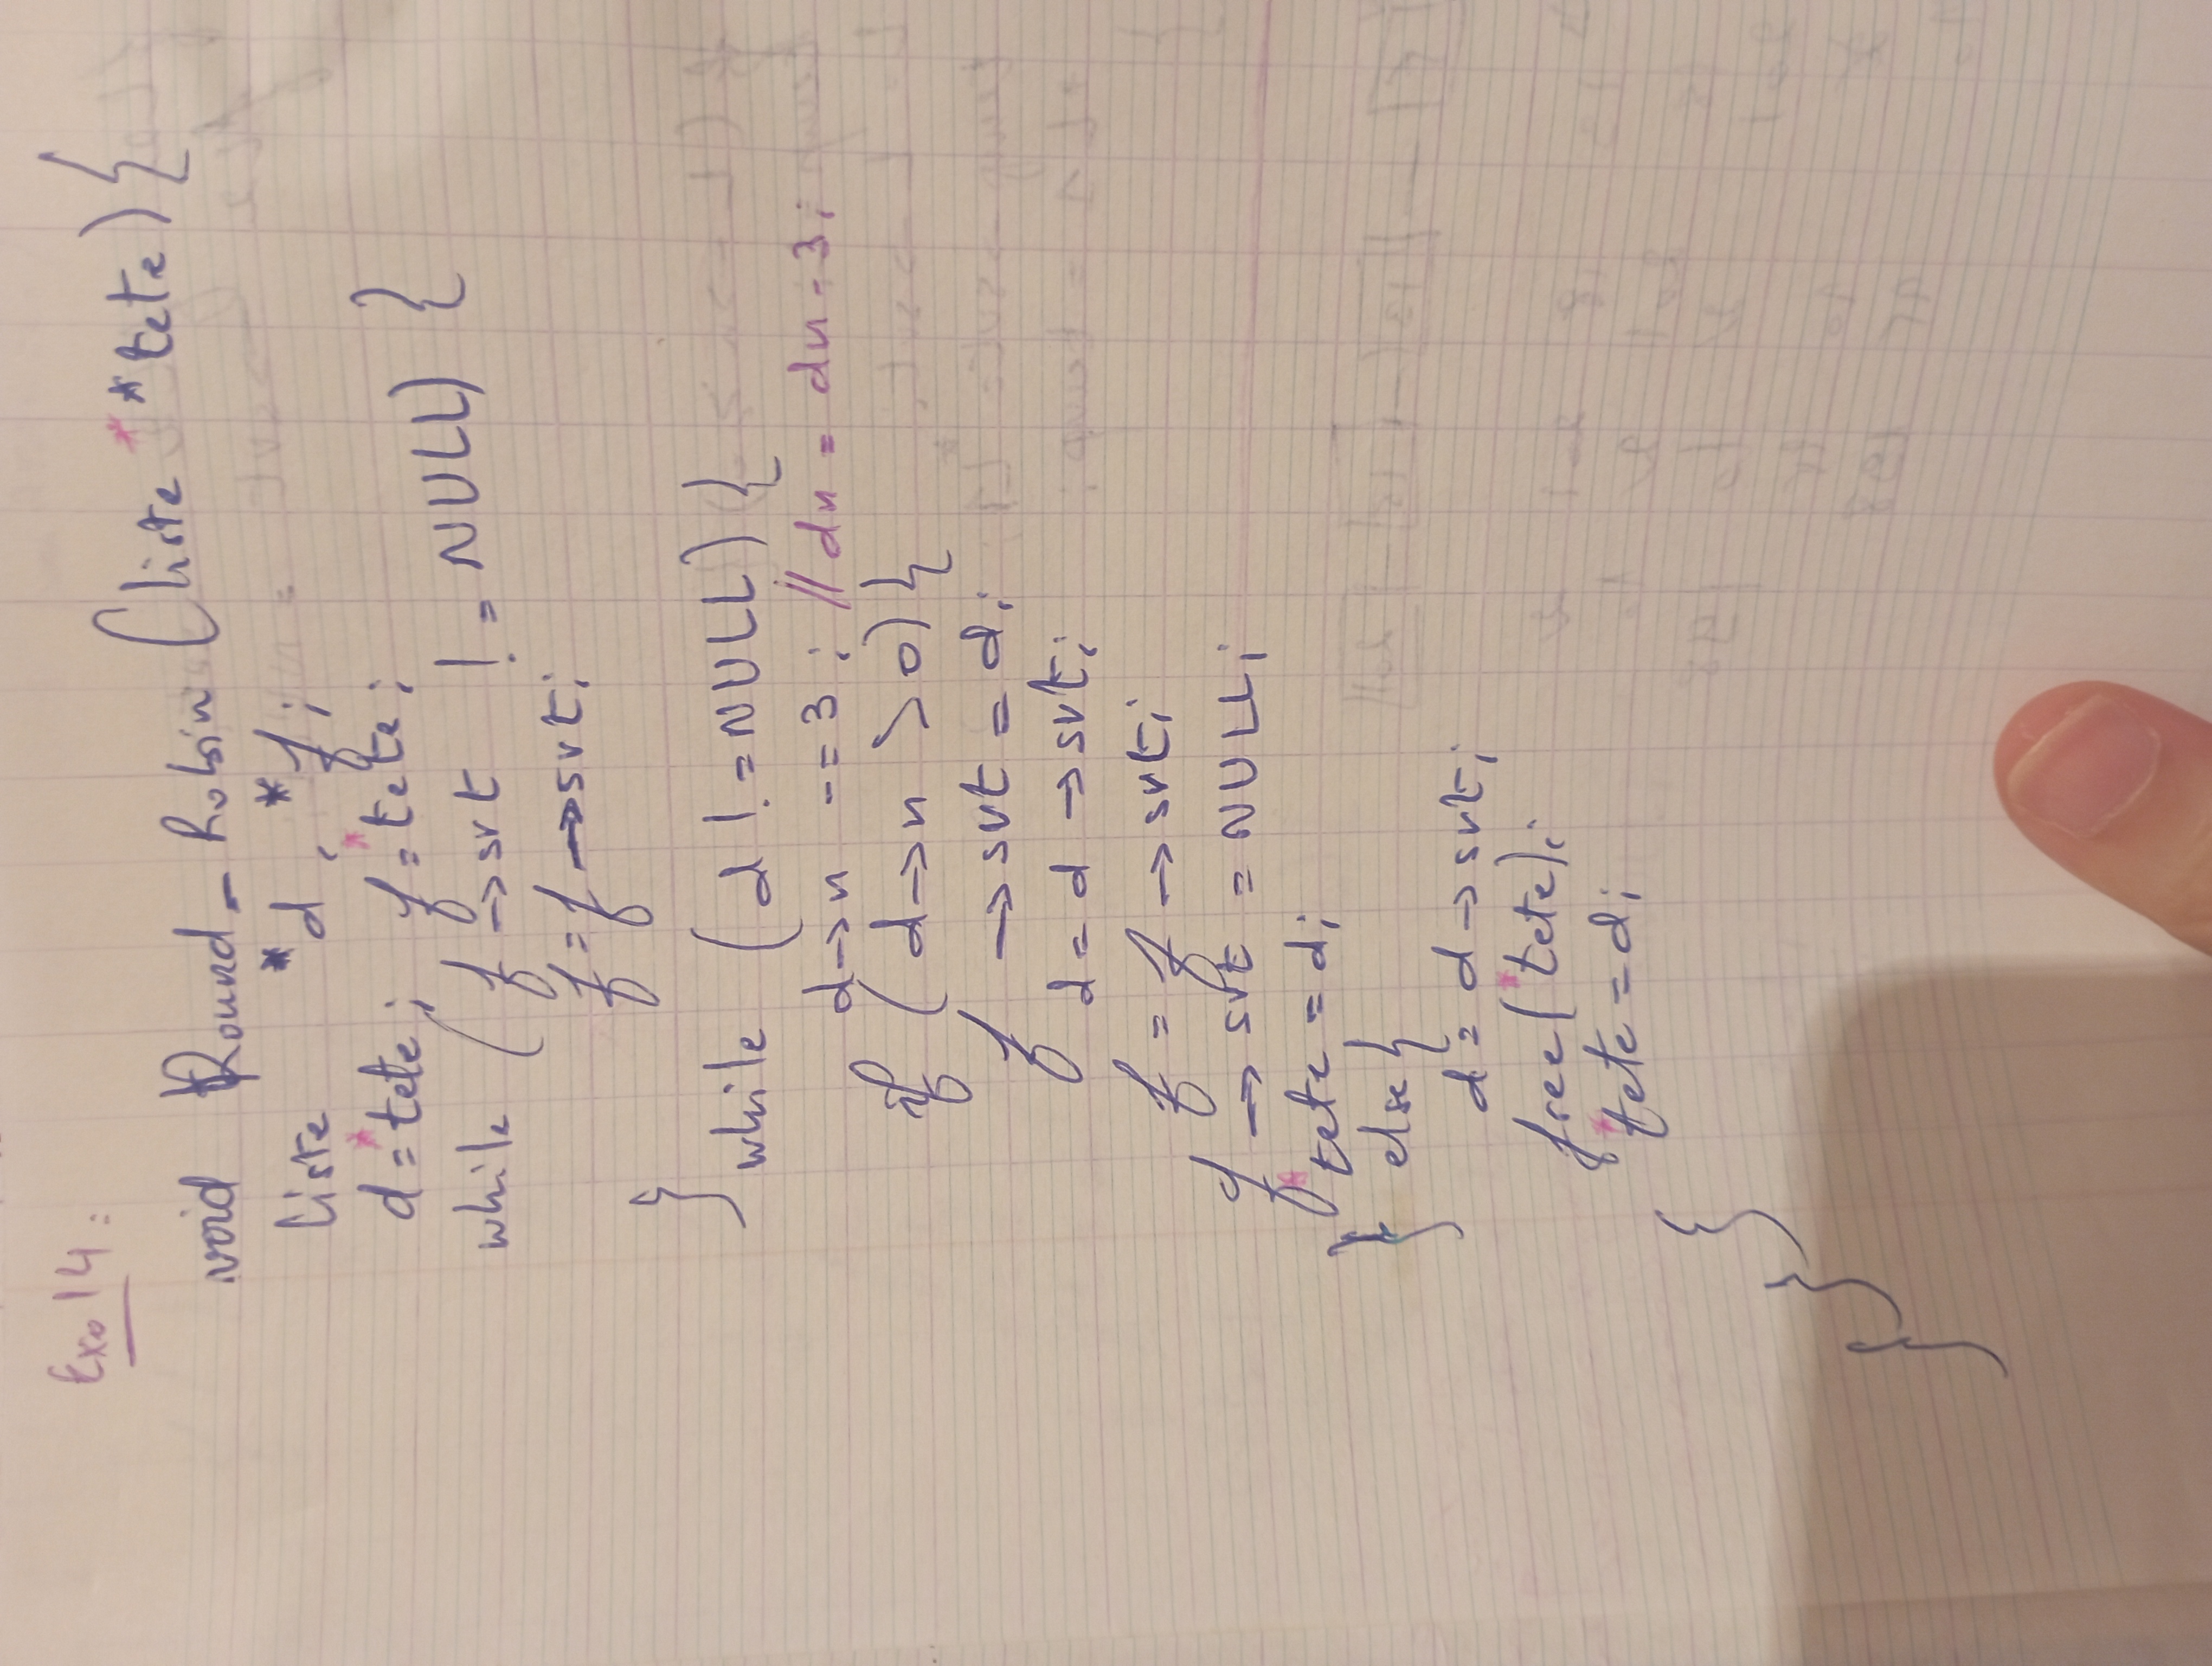 Exo 14 :
void Round_Robin (liste **tete) {
liste *d, *f;
d = *tete; f = *tete;
while (f → svt != NULL) {
f = f → svt;
}
while (d != NULL) {
d → n -= 3; // dn = dn - 3;
if (d → n > 0) {
f → svt = d;
d = d → svt;
f = f → svt;
f → svt = NULL;
*tete = d;
} else {
d = d → svt;
free(*tete);
*tete = d;
}
}
}